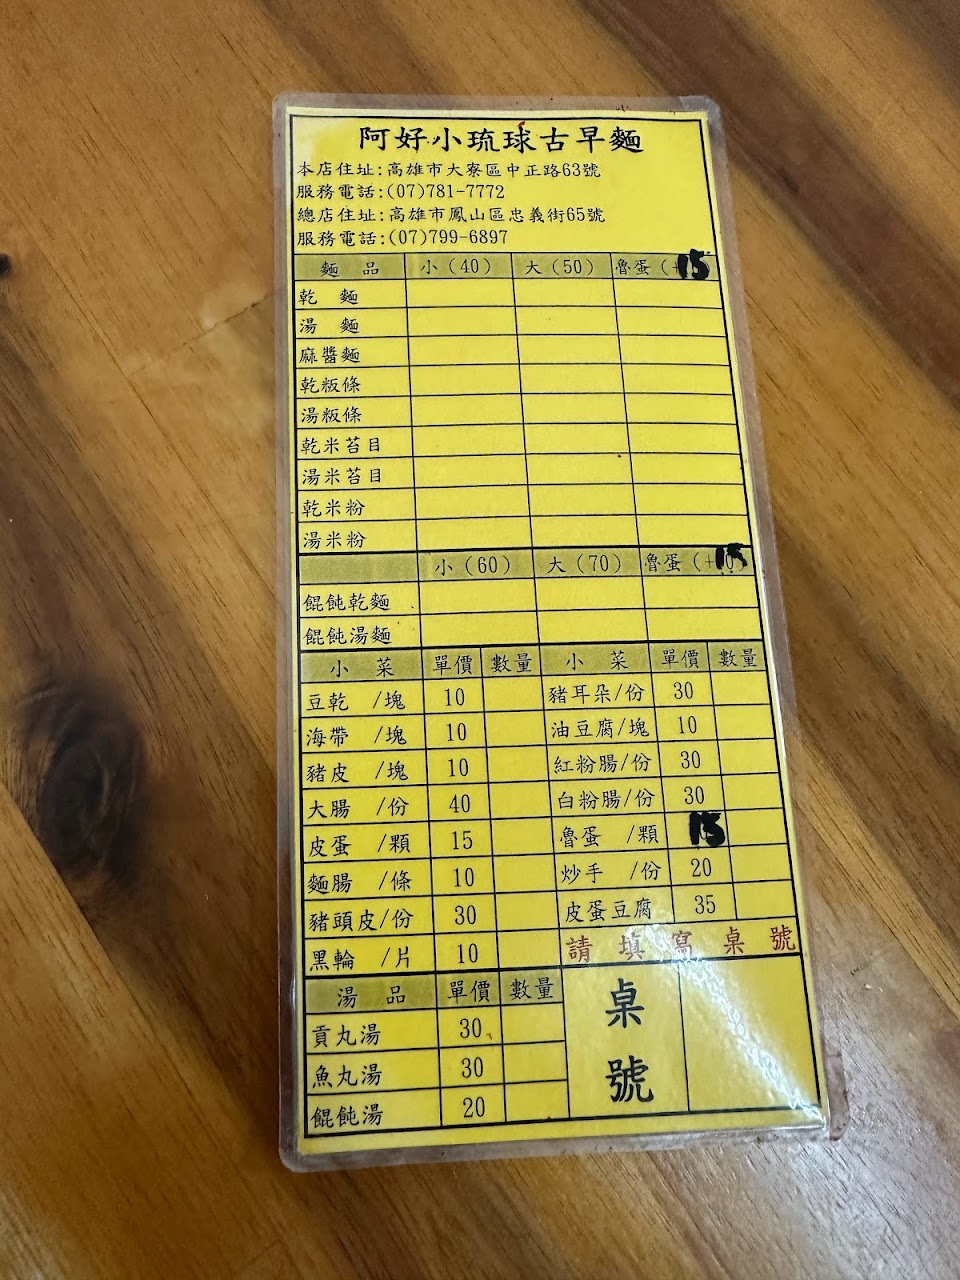 阿好小琉球古早麵
本店住址:高雄市大寮區中正路63號
服務電話:(07)781-7772
總店住址:高雄市鳳山區忠義街65號
服務電話:(07)799-6897
麵 品 小(40) 大(50) 魯蛋(+15
乾 麵
湯 麵
麻醬麵
乾粄條
湯粄條
乾米苔目
湯米苔目
乾米粉
湯米粉
小(60) 大(70) 魯蛋(+15)
餛飩乾麵
餛飩湯麵
小 菜 單價 數量 小 菜 單價 數量
豆乾 /塊 10 豬耳朵/份 30
海帶 /塊 10 油豆腐/塊 10
豬皮 /塊 10 紅粉腸/份 30
大腸 /份 40 白粉腸/份 30
皮蛋 /顆 15 魯蛋 /顆 15
麵腸 /條 10 炒手 /份 20
豬頭皮/份 30 皮蛋豆腐 35
黑輪 /片 10 請填寫桌號
湯 品 單價 數量 桌號
貢丸湯 30
魚丸湯 30
餛飩湯 20